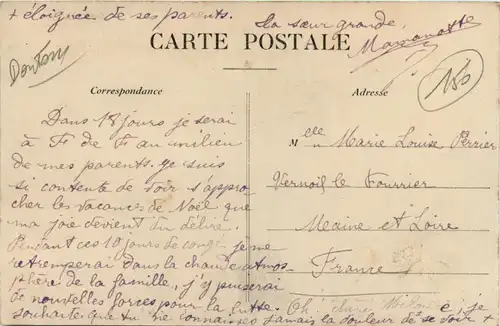 + éloignée de ses parents.
Ta sœur grande
CARTE POSTALE
Correspondance
Adresse
150
Dans 18 jours je serai
à F de F au milieu
de mes parents. Je suis
si contente de voir s'appro
cher les vacances de Noël que
ma joie devient du délire.
Pendant ces 10 jours de congé, je me
retremperai dans la chaude atmos-
phère de la famille, j'y puiserai
de nouvelles forces pour la lutte. Oh! chère
souhaite que tu ne connaisses jamais la douleur de se voir +
Melle Marie Louise Perrier
Vernoil le Fourrier
Maine et Loire
France